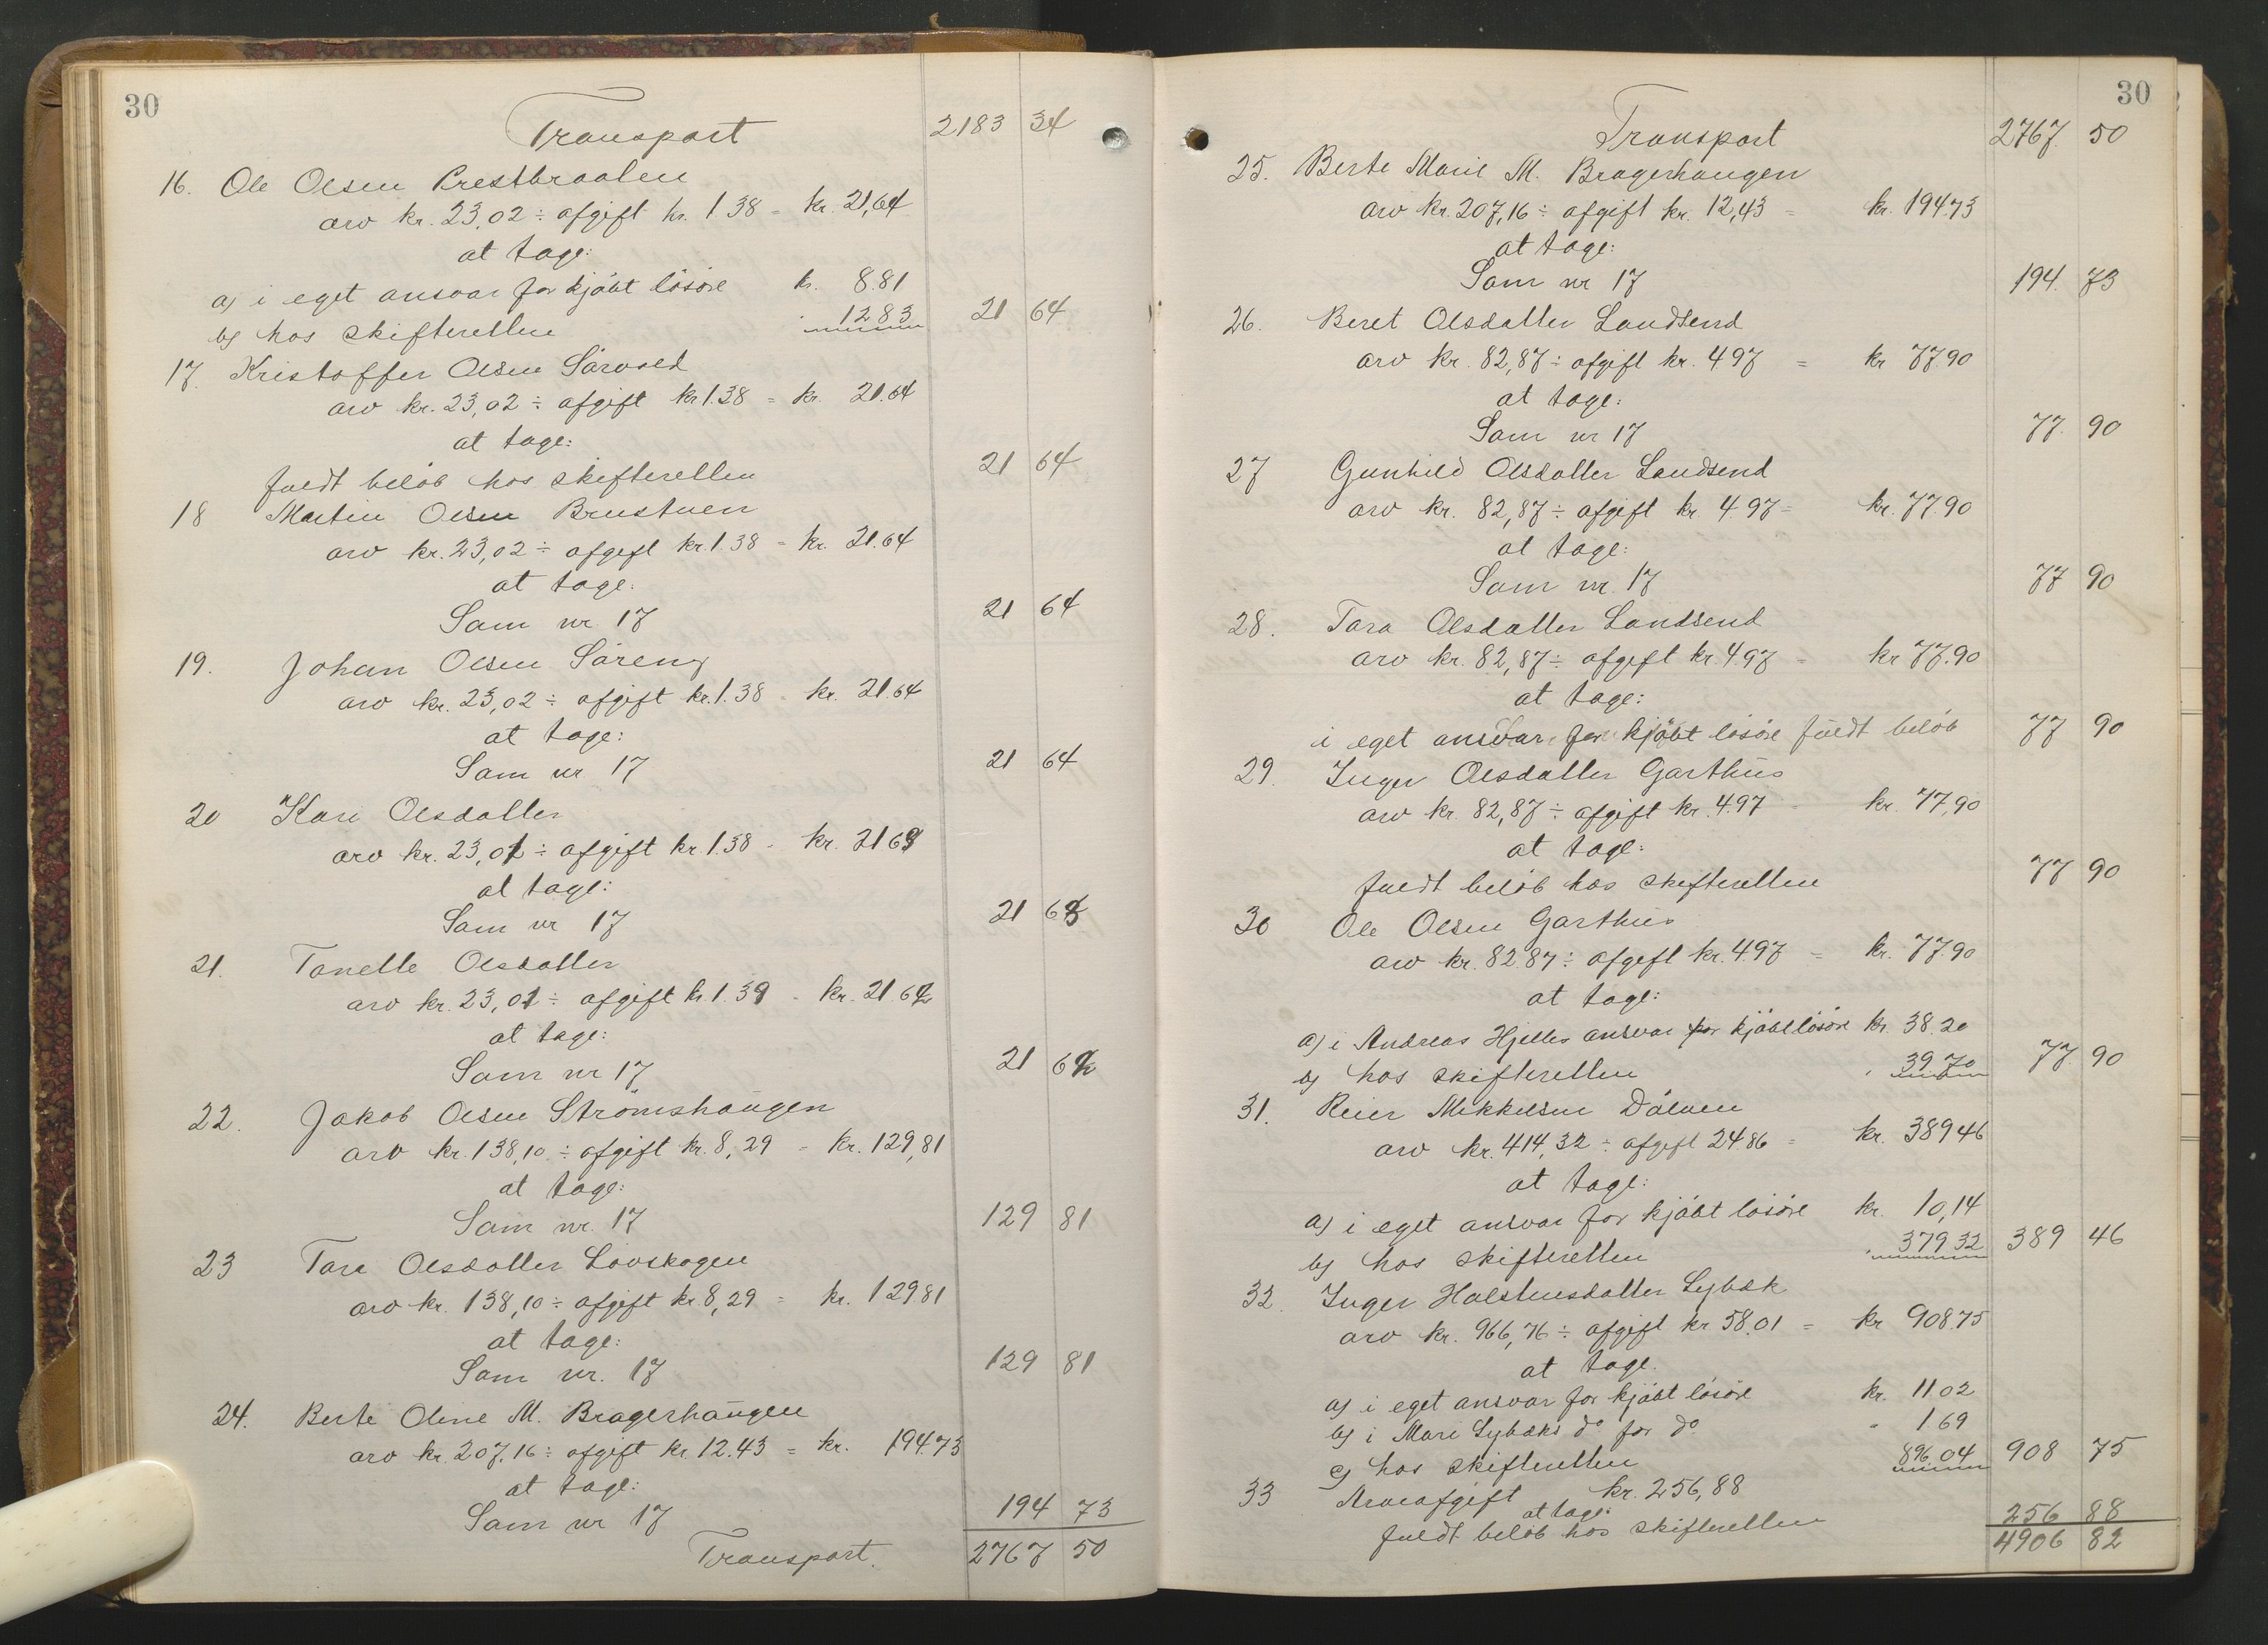 30
Transport 2183 34
16. Ole Olsen Prestbraaten
arv kr. 23,02 ÷ afgift kr. 1.38 = kr. 21,64
at tage:
a) i eget ansvar for kjøbt løsøre kr. 8.81
b) hos skifteretten " 12.83 21 64
17. Kristoffer Olsen Sørvold
arv kr. 23,02 ÷ afgift kr 1.38 = kr. 21.64
at tage:
fuldt beløb hos skifteretten 21 64
18 Martin Olsen Brustuen
arv kr. 23,02 ÷ afgift kr. 1.38 = kr. 21.64
at tage:
Som nr 17 21 64
19. Johan Olsen Søreng
arv kr. 23,02 ÷ afgift kr. 1.38 - kr. 21.64
at tage:
Som nr 17 21 64
20 Kari Olsdatter
arv kr. 23,01 ÷ afgift kr 1.38 - kr. 21 63
at tage:
Som nr 17 21 63
21. Tonette Olsdatter
arv kr. 23,01 ÷ afgift kr 1.39 - kr. 21.62
at tage:
Som nr 17 21 62
22. Jakob Olsen Strømshaugen
arv kr. 138,10 ÷ afgift kr. 8,29 - kr. 129,81
at tage:
Som nr. 17 129 81
23 Tora Olsdatter Lovskogen
arv kr. 138,10 ÷ afgift kr. 8,29 = kr. 129 81
at tage:
Som nr. 17 129 81
24. Berte Oline M. Bragerhaugen
arv kr. 207,16 ÷ afgift kr. 12.43 = kr. 194.73
at tage:
Som nr 17 194 73
Transport. 2767 50
30
Transport 2767. 50
25. Berte Marie M. Bragerhaugen
arv kr. 207,16 ÷ afgift kr. 12,43 = kr. 194.73
at tage:
Som nr 17 194. 73
26. Beret Olsdatter Landsend
arv kr. 82,87 ÷ afgift kr. 4 97 = kr 77.90
at tage:
Som nr 17 77. 90
27 Gunhild Olsdatter Landsend
arv kr. 82,87 ÷ afgift kr. 4 97 = kr. 77.90
at tage:
Som nr. 17 77 90
28. Tora Olsdatter Landsend
arv kr. 82,87 ÷ afgift kr. 4.97 - kr 77.90
at tage:
i eget ansvar for kjøbt løsøre fuldt beløb 77 90
29. Inger Olsdatter Garthus
arv kr. 82,87 ÷ afgift kr. 4.97 - kr. 77,90
at tage:
fuldt beløb hos skifteretten 77 90
30 Ole Olsen Garthus
arv kr. 82.87 ÷ afgift kr. 4.97 = kr. 77.90
at tage:
a) i Andreas Hjelles ansvar for kjøbt løsøre kr. 38.20
b) hos skifteretten " 39.70 77 90
31. Reier Mikkelsen Dølven
arv kr. 414,32 ÷ afgift 24.86 = kr. 389 46
at tage:
a) i eget ansvar for kjøbt løsøre kr. 10,14
b) hos skifteretten " 379 32 389 46
32. Inger Halstensdatter Lybæk
arv kr. 966,76 ÷ afgift kr 58.01 = kr 908.75
at tage.
a) i eget ansvar for kjøbt løsøre kr. 11.02
b) i Mari Lybæks do for do " 1.69
c) hos skifteretten 896.04 908 75
33 Arveafgift kr. 256,88
at tage:
fuldt beløb hos skifteretten 256 88
4906 82